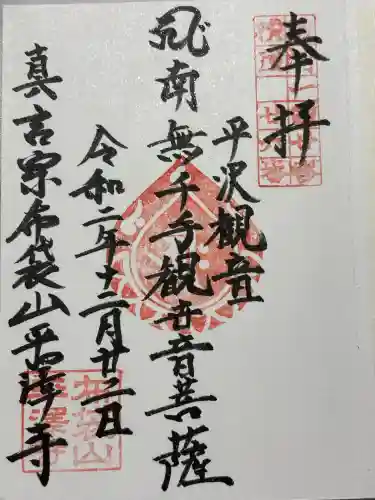 奉拝
平沢観音
南無千手観世音菩薩
令和二年十二月廿三日
真言宗布袋山平澤寺
布袋山
平澤寺